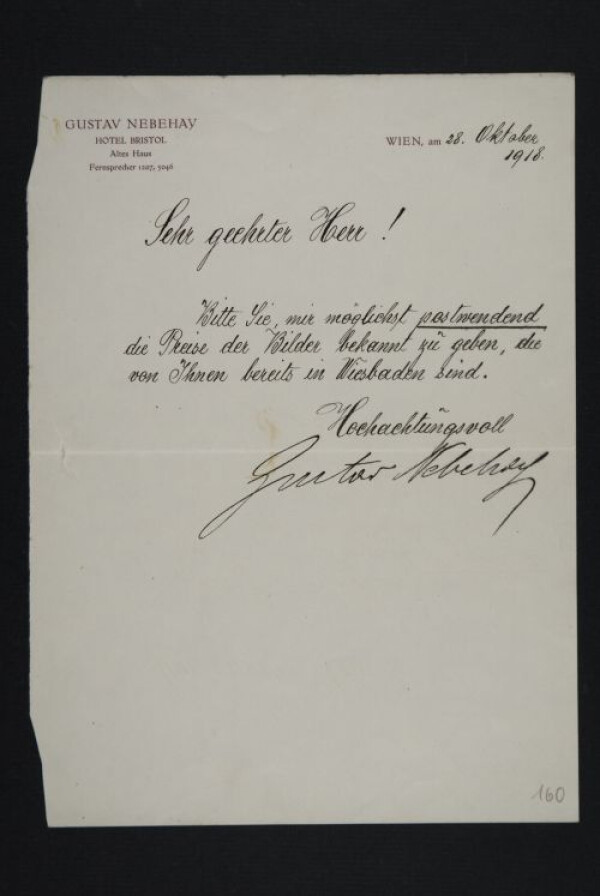 GUSTAV NEBEHAY
HOTEL BRISTOL
Altes Haus
Fernsprecher 1227, 5046
WIEN, am 28. Oktober
1918.
Sehr geehrter Herr !
Bitte Sie, mir möglichst postwendend
die Preise der Bilder bekannt zu geben, die
von Ihnen bereits in Wiesbaden sind.
Hochachtungsvoll
Gustav Nebehay
160